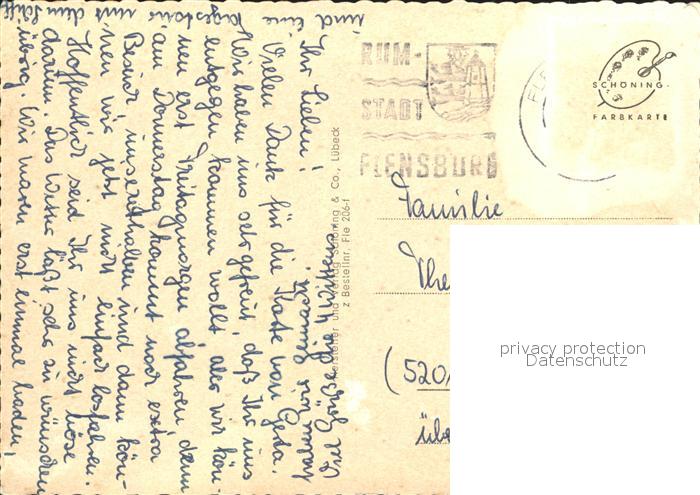 Ihr Lieben!
Vielen Dank für die Karte von Gerda.
Wir haben uns sehr gefreut, daß Ihr uns
entgegen kommen wollt aber wir kön-
nen erst Freitagmorgen abfahren denn
am Donnerstag kommt noch extra
Besuch unserthalben und dann kön-
nen wir jetzt nicht einfach losfahren.
Hoffentlich seid Ihr uns nicht böse
darum. Das Wetter läßt sehr zu wünschen
übrig. Wir waren erst einmal baden,
und eine mit dem Schiff
Hersteller und Verlag Schöning & Co., Lübeck
z Bestellnr. Fle 206-f
RUM-
STADT
FLENSBURG
FLE
SCHÖNING-
FARBKARTE
Familie
The
(520
übe
privacy protection
Datenschutz